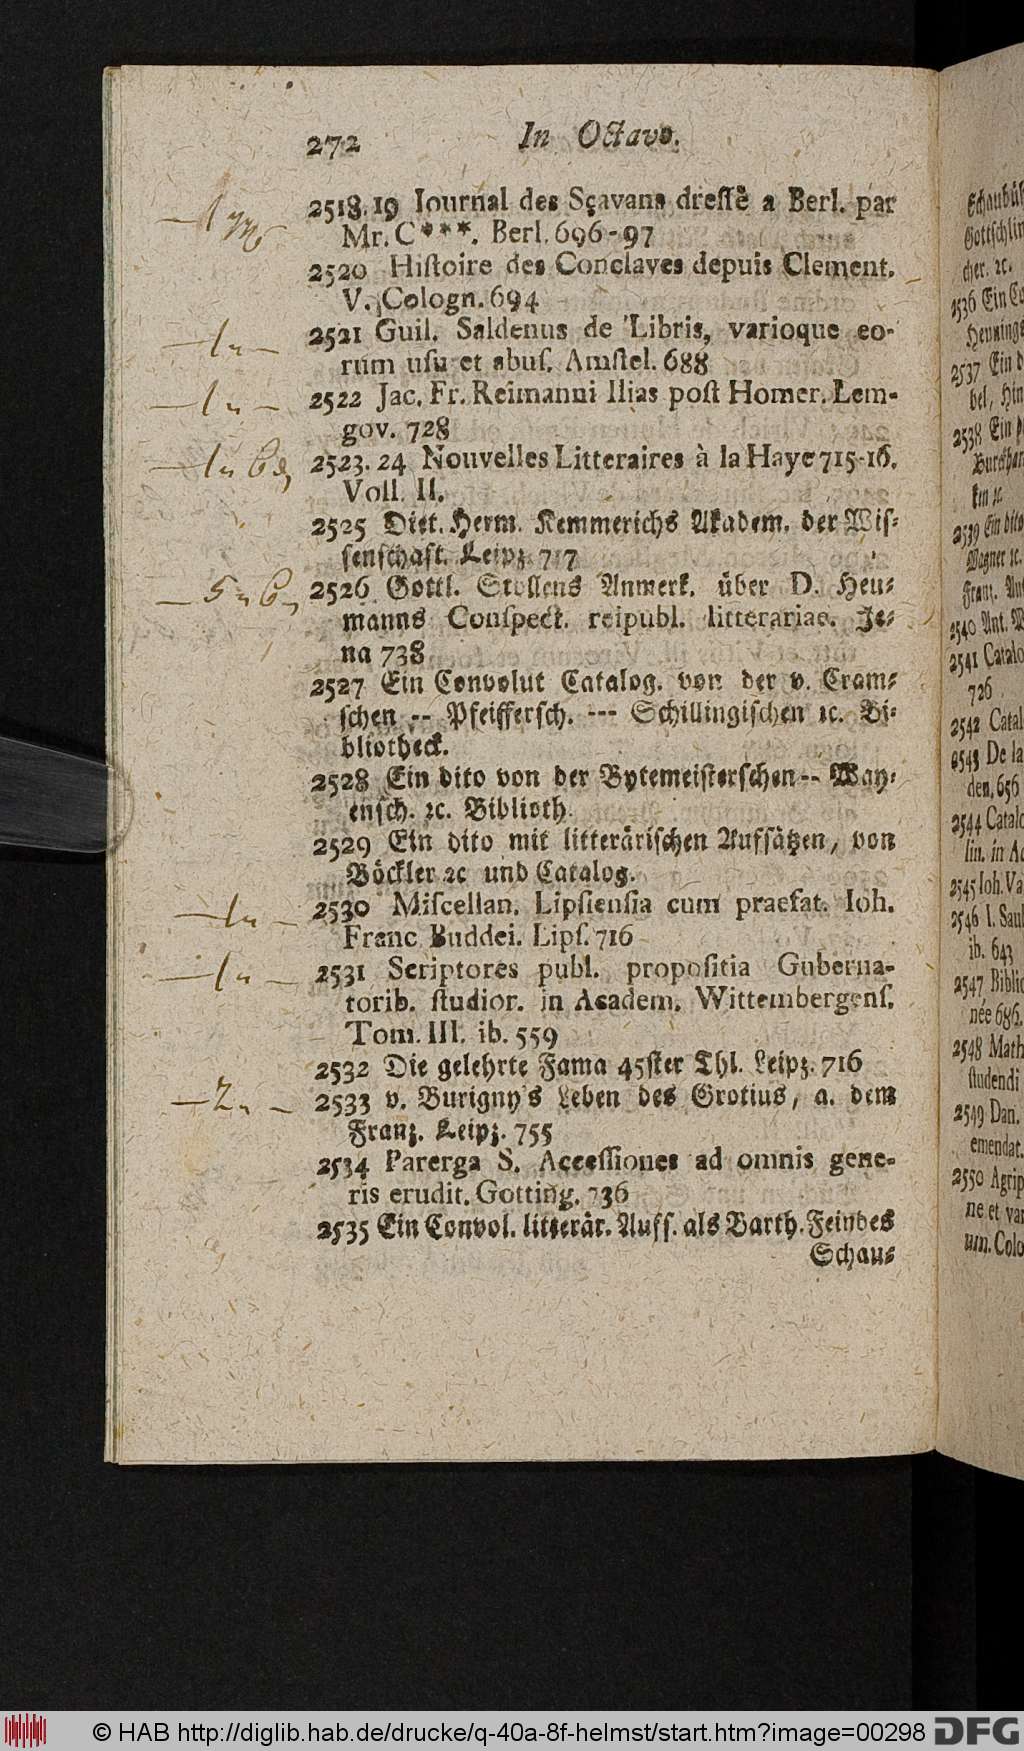 272 In Octavo.
2518.19 Iournal des Sçavans dreſſè a Berl. par
Mr. C***. Berl. 696-97
2520 Hiſtoire des Conclaves depuis Clement.
V. Cologn. 694
2521 Guil. Saldenus de Libris, varioque eo-
rum uſu et abuſ. Amſtel. 688
2522 Jac. Fr. Reimanni Ilias poſt Homer. Lem-
gov. 728
2523. 24 Nouvelles Litteraires à la Haye 715-16.
Voll. II.
2525 Diet. Herm. Kemmerichs Akadem. der Wiſ-
ſenſchaft. Leipz. 717
2526 Gottl. Stollens Anmerk. über D. Heu-
manns Conſpect. reipubl. litterariae. Je-
na 738
2527 Ein Convolut Catalog. von der v. Cram-
ſchen -- Pfeifferſch. --- Schillingiſchen ꝛc. Bi-
bliotheck.
2528 Ein dito von der Bytemeiſterſchen -- Way-
enſch. ꝛc. Biblioth.
2529 Ein dito mit litteräriſchen Aufſätzen, von
Böckler ꝛc und Catalog.
2530 Miſcellan. Lipſienſia cum praefat. Ioh.
Franc Buddei. Lipſ. 716
2531 Scriptores publ. propoſitia Guberna-
torib. ſtudior. in Academ. Wittembergenſ.
Tom. III. ib. 559
2532 Die gelehrte Fama 45ſter Thl. Leipz. 716
2533 v. Burigny's Leben des Grotius, a. dem
Franz. Leipz. 755
2534 Parerga S. Acceſſiones ad omnis gene-
ris erudit. Gotting. 736
2535 Ein Convol. litterär. Auff. als Barth. Feindes
Schau-
2537 Ein
2538 Ein
2541
726
2542
2543 De la
den, 656
2544
lin. in
2545 Ioh. Va
2546 I. Saul
ib. 643
2547
née 686.
2548 Math
ſtudendi
2549 Dan.
emendat.
2550 Agrip
ne et var
um. Colo
© HAB http://diglib.hab.de/drucke/q-40a-8f-helmst/start.htm?image=00298 DFG